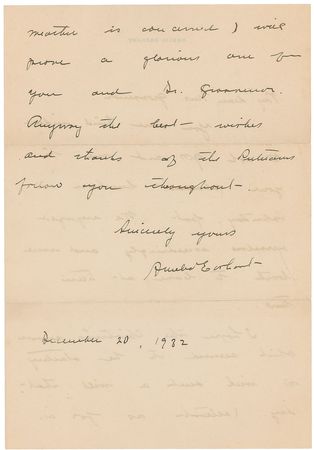 matter is concerned) will
prove a glorious one for
you and Dr. Grosvenor.
Anyway the best wishes
and thanks of the Putnams
follow you throughout.
Sincerely yours
Amelia Earhart
December 20, 1932